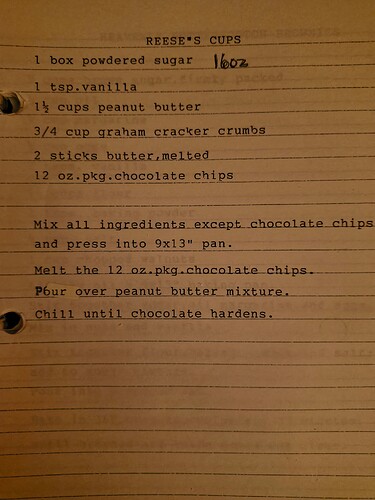 REESE"S CUPS
1 box powdered sugar 16oz
1 tsp.vanilla
1½ cups peanut butter
3/4 cup graham cracker crumbs
2 sticks butter,melted
12 oz.pkg.chocolate chips
Mix all ingredients except chocolate chips
and press into 9x13" pan.
Melt the 12 oz.pkg.chocolate chips.
Pour over peanut butter mixture.
Chill until chocolate hardens.